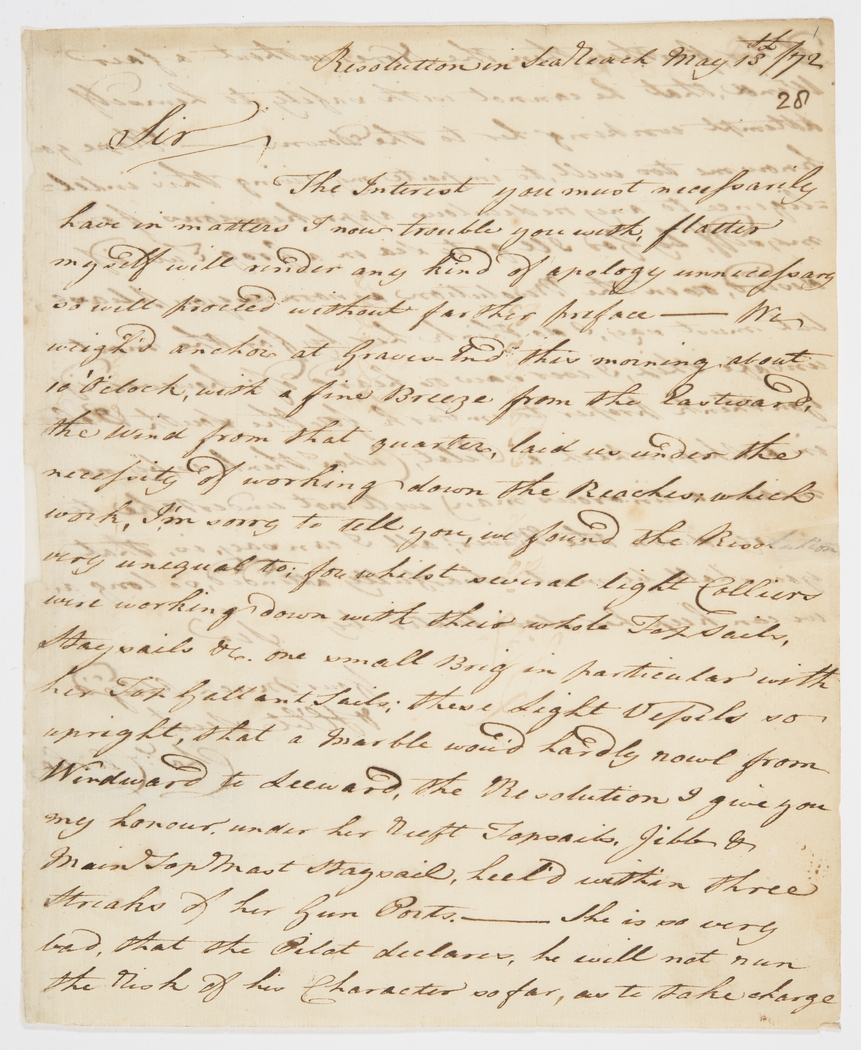 Resolution in Sea Reach May 13th /72
28
Sir
The Interest you must necessarily
have in matters I now trouble you with, flatter
myself will render any kind of apology unnecessary
so will proceed without farther preface — We
weigh'd anchor at Graves-End this morning about
10 'Oclock, with a fine Breeze from the Eastward,
the Wind from that quarter, laid us under the
necessity of working down the Reaches, which
work, I'm sorry to tell you, we found the Resolution
very unequal to; for whilst several light Colliers
were working down with their whole Top Sails,
Staysails &c. one small Brig in particular with
her Top Gallant Sails; these light Vessels so
upright, that a Marble wou'd hardly rowl from
Windward to Leeward, the Resolution I give you
my honour, under her Reeft Topsails, Jibb &
Main Top Mast Staysail, heel'd within three
Streaks of her Gun Ports. — She is so very
bad, that the Pilot declares, he will not run
the Risk of his Character so far, as to take charge